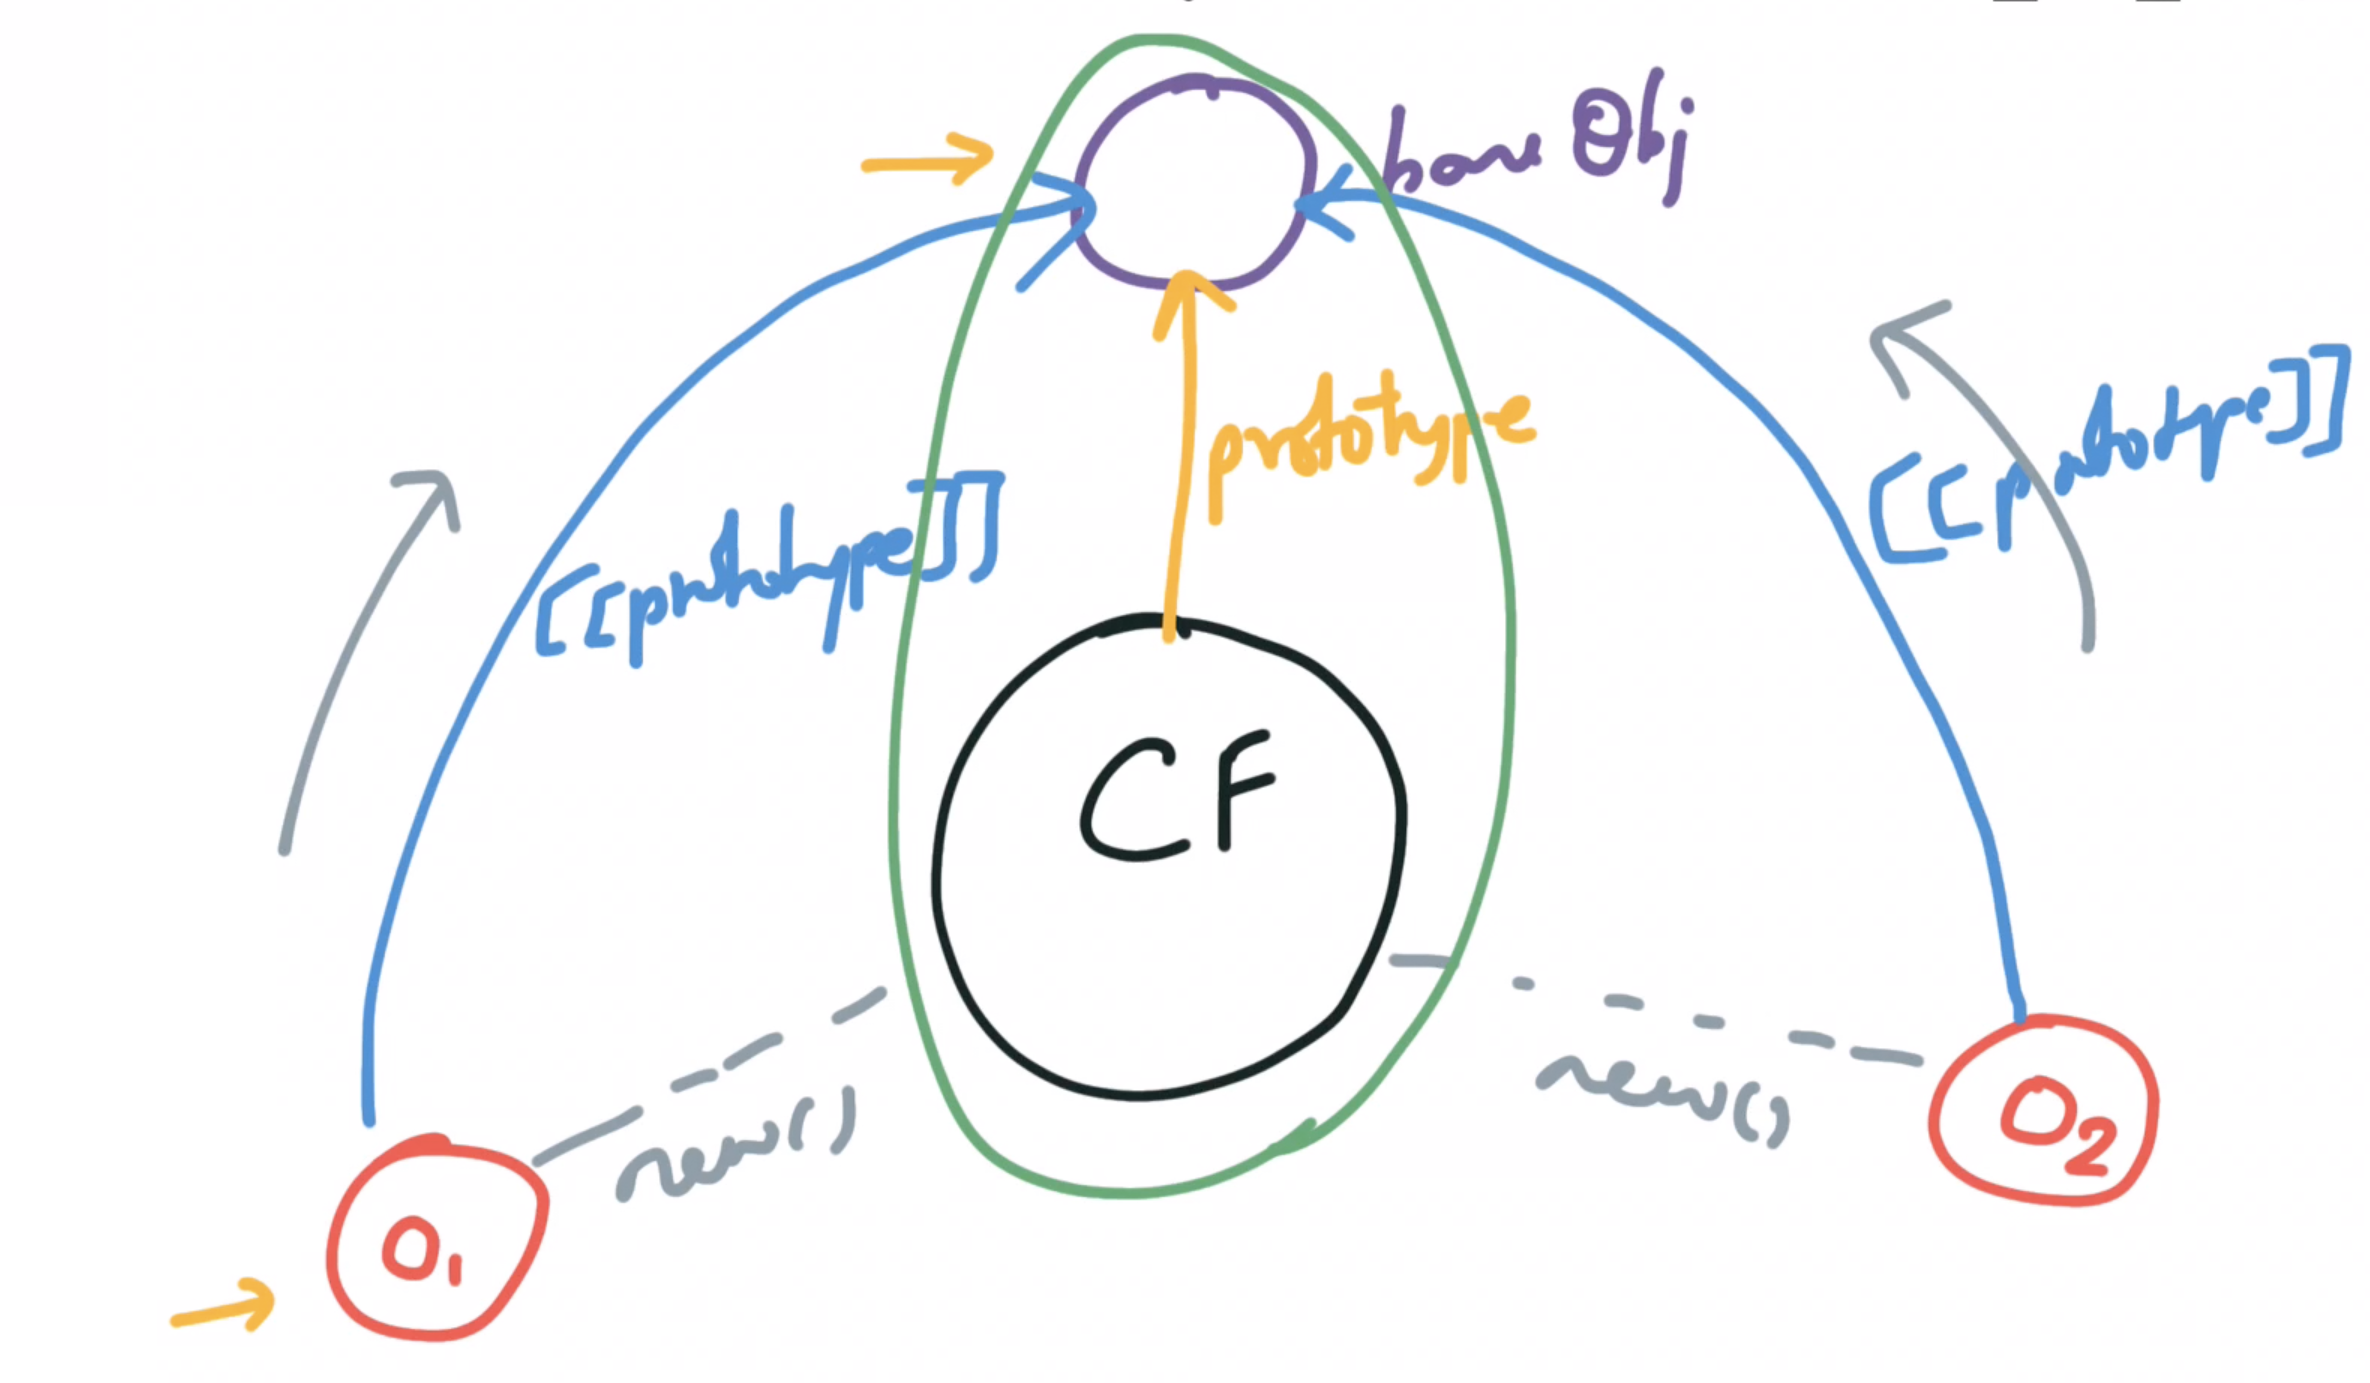 base Obj
prototype
[[prototype]]
[[prototype]]
CF
new()
new()
O1
O2